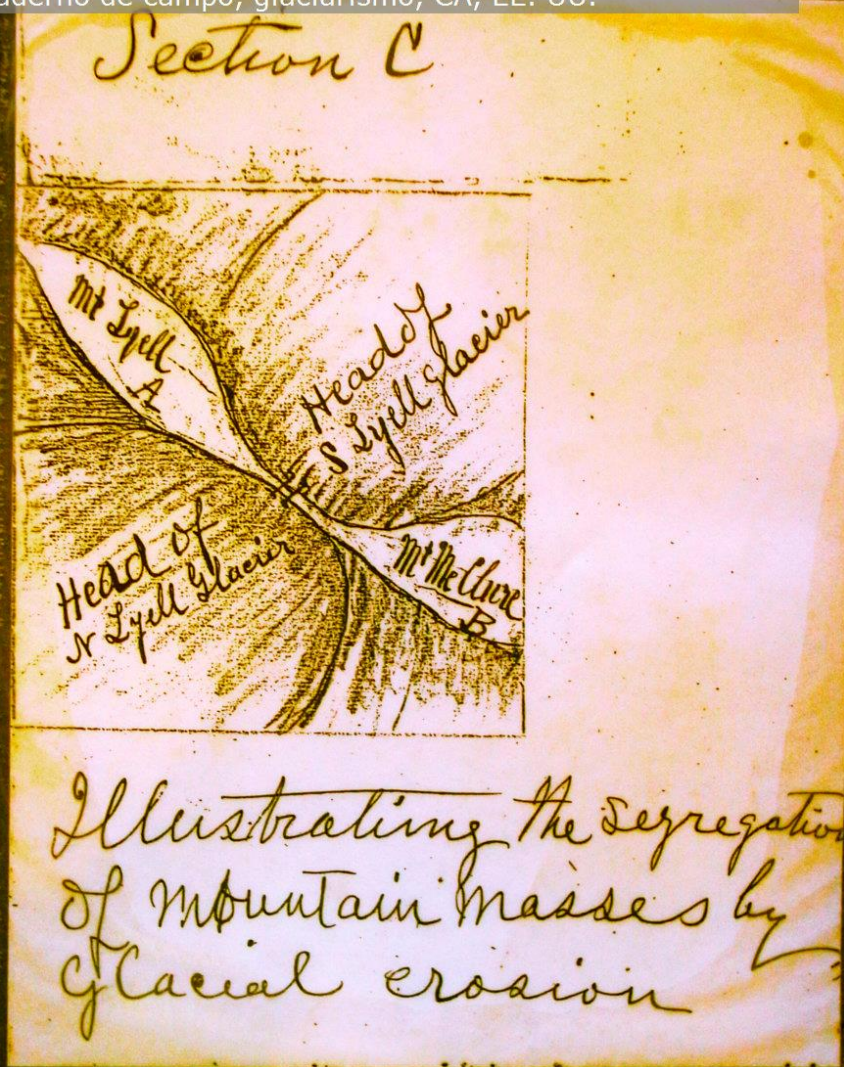 aderno de campo, glaciarismo, CA, EE. UU.
Section C
Mt Lyell
A
Head of
S Lyell Glacier
Head of
N Lyell Glacier
Mt McClure
B
Illustrating the segregation
of mountain masses by
Glacial erosion